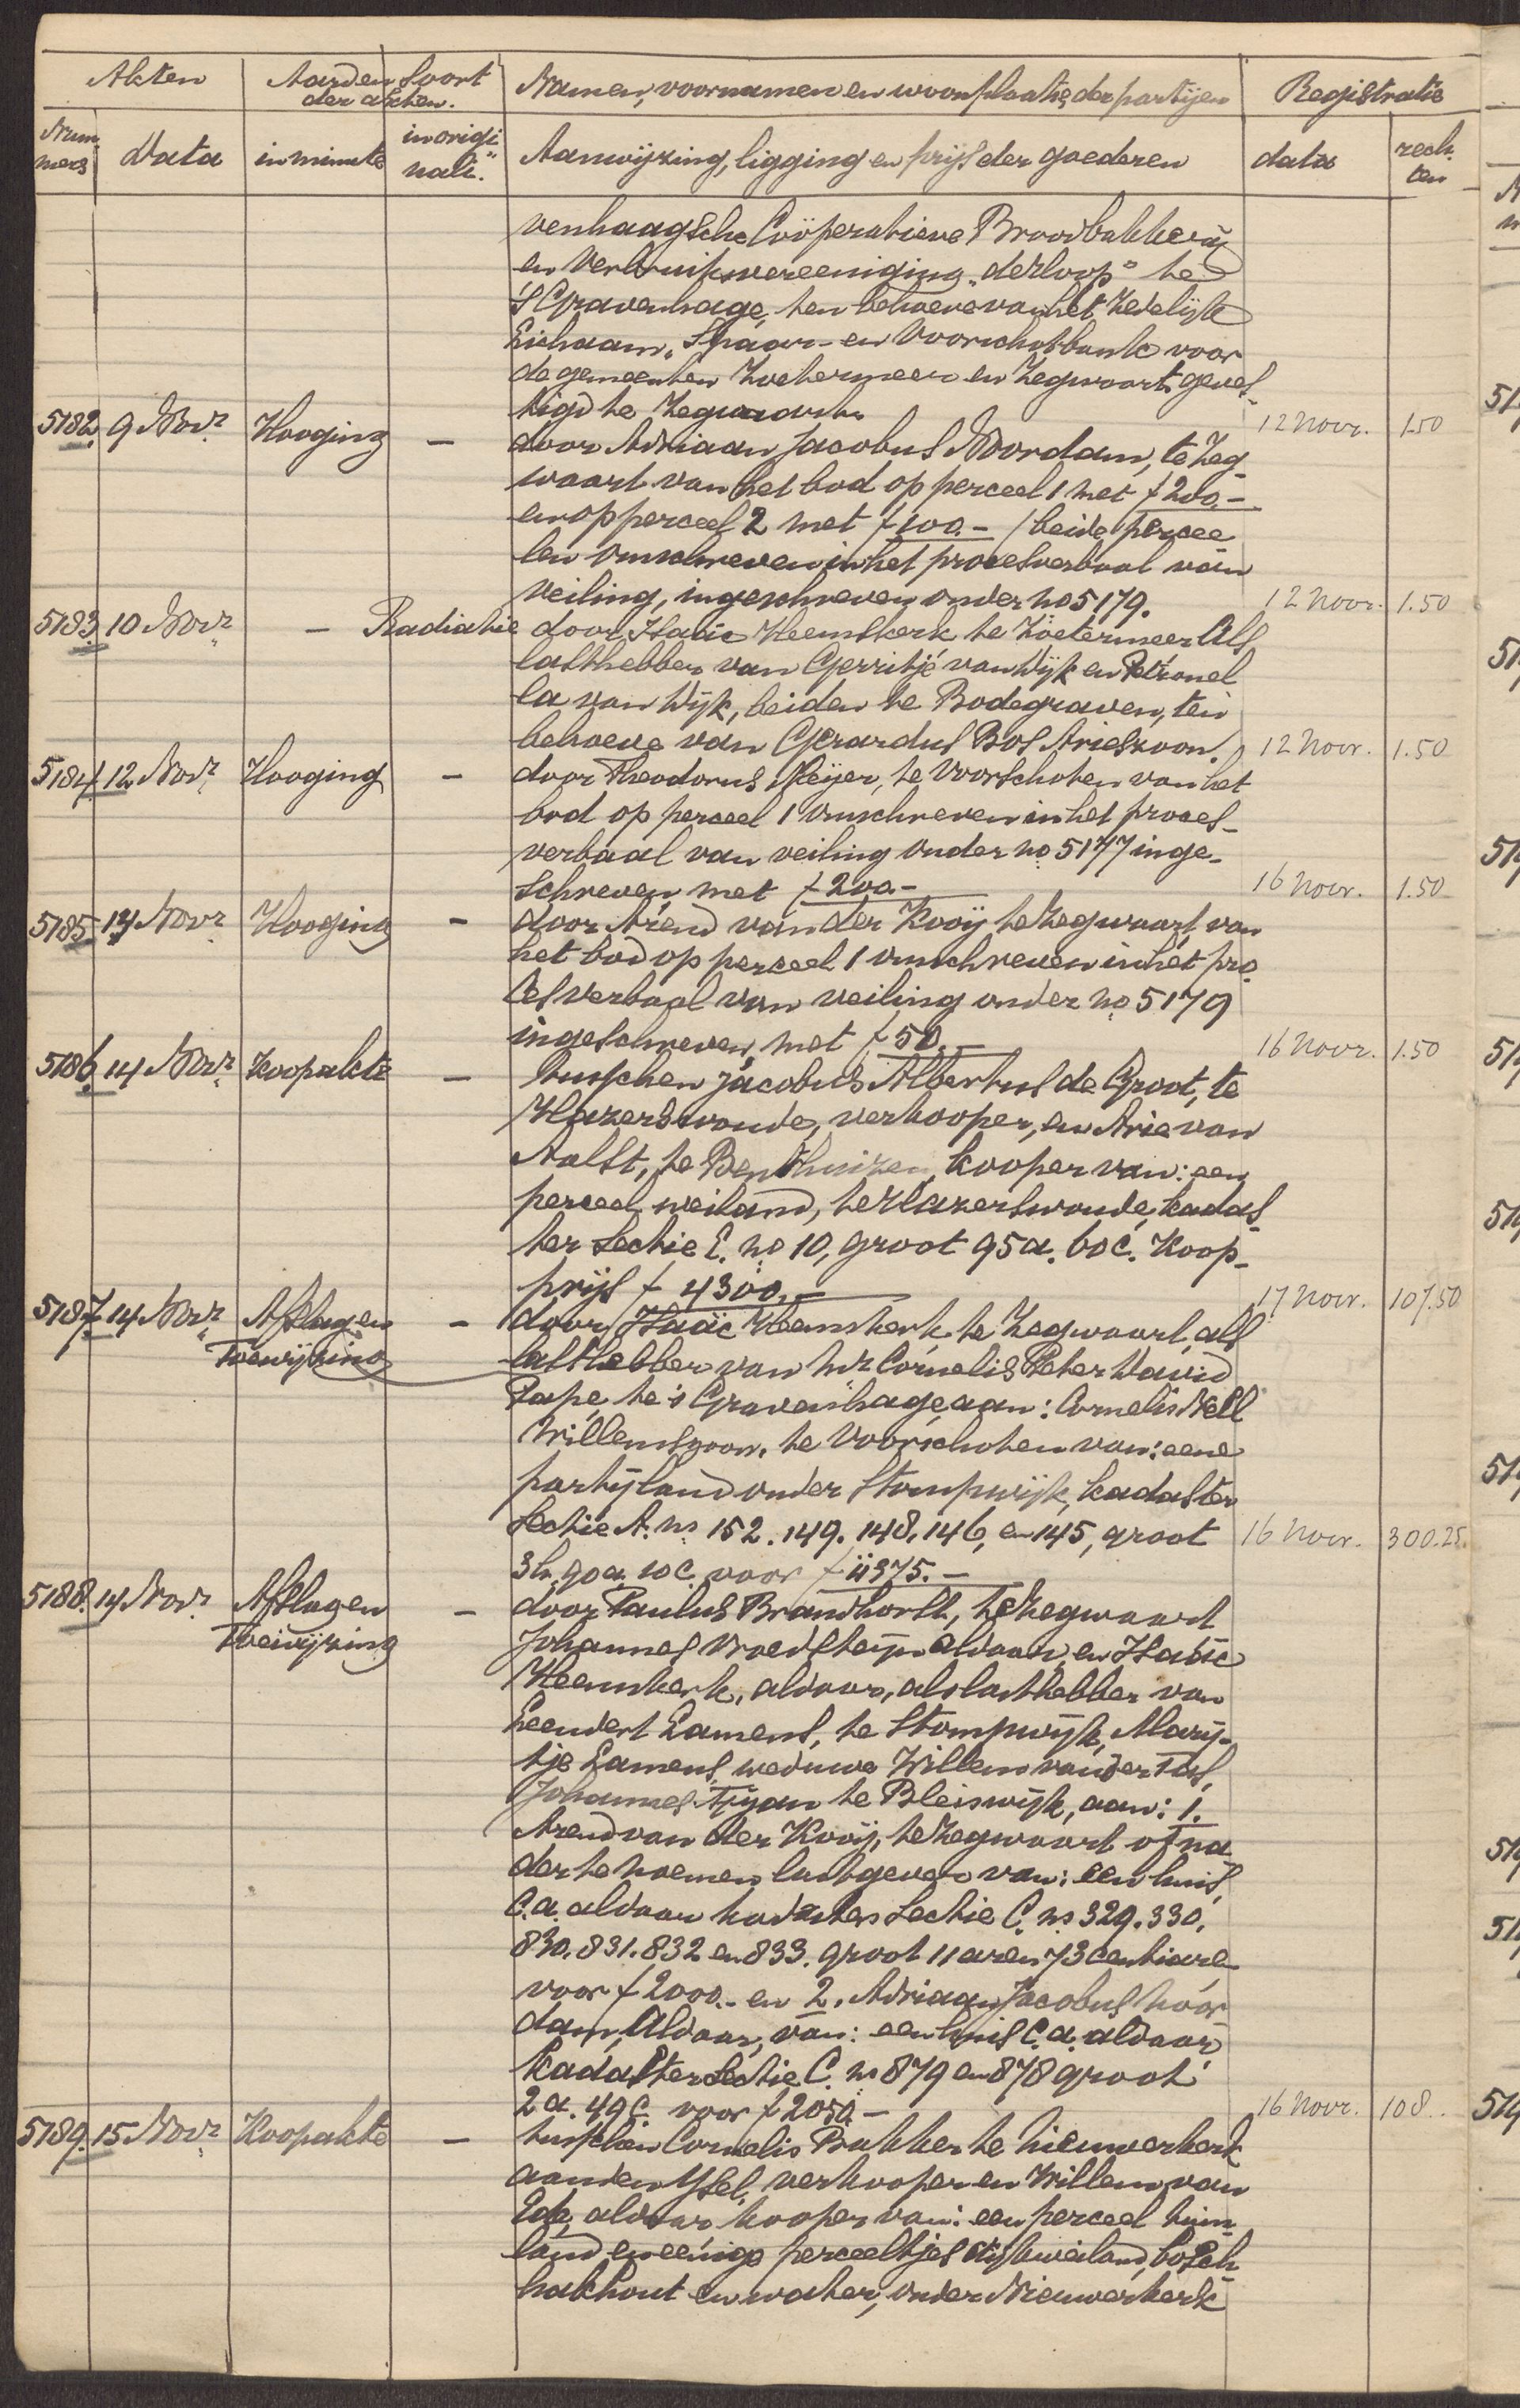 Akten
Aard en Soort der akten.
Namen, voornamen en woonplaatsen der partijen
Registratie
Nummers
Data
in minute
in originali.
Aanwijzing, ligging en prijs der goederen
data
rechten
venhaagsche Coöperatieve Broodbakkerij
en Verbruiksvereeniging "de Hoop" te
'S Gravenhage, ten behoeve van het Zedelijk
Lichaam, Spaar- en Voorschotbank voor
de gemeenten Zoetermeer en Zegwaart geves-
tigd te Zegwaart. 12 Novr. 1.50
5182. 9 Novr. Hooging — door Adriaan Jacobus Noordam, te Zeg-
waart van het bod op perceel 1 met f 200.-
en op perceel 2 met f 100.- / beide percee
len omschreven in het procesverbaal van
veiling, ingeschreven onder no 5179. 12 Novr. 1.50
5183 10 Novr. — Radiatie door Isaäc Heemskerk te Zoetermeer als
lasthebber van Gerritje van Wijk en Petronel
la van Wijk, beiden te Bodegraven, ten
behoeve van Gerardus Bos Arieszoon. 12 Novr. 1.50
5184. 12 Novr. Hooging — door Theodorus Meijer, te Voorschoten van het
bod op perceel 1 omschreven in het proces-
verbaal van veiling onder no 5177 inge-
schreven, met f 200.- 16 Novr. 1.50
5185 14 Novr. Hooging — door Arend van der Kooij te Zegwaart, van
het bod op perceel 1 omschreven in het pro
cesverbaal van veiling onder no 5179
ingeschreven, met f 50.- 16 Novr. 1.50
5186. 14 Novr. Koopakte — tusschen Jacobus Albertus de Groot, te
Hazerswoude, verkooper, en Arie van
Aalst, te Benthuizen, kooper van: een
perceel weiland, te Hazerswoude, kadas
ter Sectie E. no 10, groot 95 a. 60 c. Koop-
prijs f 4300.- 17 Novr. 107.50
5187. 14 Novr. Afslag en Toewijzing — door Isaäc Heemskerk te Zegwaart, als
lasthebber van Mr. Cornelis Pieter David
Pape, te 's Gravenhage, aan: Cornelis Nell
Willemszoon, te Voorschoten van: eene
partij land onder Stompwijk, kadaster
Sectie A. no 152. 149. 148. 146, en 145, groot 16 Novr. 300.25.
3 h. 90 a. 10 c. voor f 11375.-
5188. 14 Novr. Afslag en Toewijzing — door Paulus Brandhorst, te Zegwaart
Johannes Vroedsteijn aldaar, en Isaäc
Heemskerk, aldaar, als lasthebber van
Leendert Lamens, te Stompwijk, Marij-
tje Lamens, weduwe Willem van der
Johannes te Bleiswijk, aan: 1.
Arend van der Kooij, te Zegwaart of na
der te noemen lastgever van: een huis,
c.a. aldaar kadaster Sectie C. no 329. 330.
830. 831. 832 en 833. groot 11 aren 73 centiare
voor f 2000.- en 2. Adriaan Jacobus Noor
dam, aldaar, van: een huis c.a. aldaar
kadaster Sectie C. no 879 en 878 groot
2 a. 49 c. voor f 2050.- 16 Novr. 108.
5189. 15 Novr. Koopakte — tusschen Cornelis Bakker te Nieuwerkerk
aan den IJsel, verkooper en Willem van
Eck, aldaar kooper van: een perceel tuin
land en eenige perceeltjes dijk weiland, bosch
hakhout en water, onder Nieuwerkerk